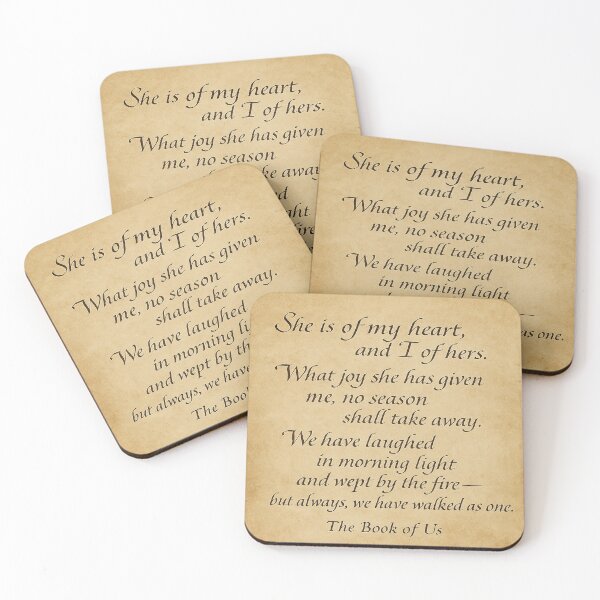 She is of my heart,
and I of hers.
What joy she has given
me, no season
take away
She is of my heart,
and I of hers.
What joy she has given
me, no season
shall take away.
We have laughed
in morning light
as one.
She is of my heart,
and I of hers.
What joy she has given
me, no season
shall take away.
We have laughed
in morning
and wept by the
but always, we have
The Book
She is of my heart,
and I of hers.
What joy she has given
me, no season
shall take away.
We have laughed
in morning light
and wept by the fire—
but always, we have walked as one.
The Book of Us